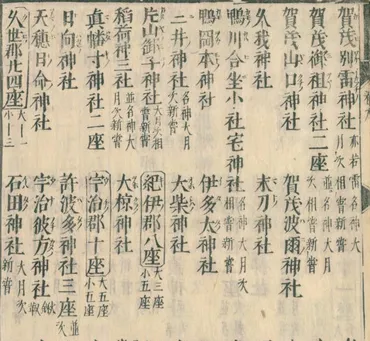 賀茂別雷神社 亦若雷名神大月次相嘗新嘗
賀茂御祖神社二座 並名神大月次相嘗新嘗
賀茂山口神社 賀茂波爾神社
久我神社 末刀神社
鴨川合坐小社宅神社 名神大月次相嘗新嘗
鴨岡本神社 伊多太神社
三井神社 名神大月次新嘗 大柴神社
片山御子神社 大月次相嘗新嘗 紀伊郡八座 大三座小五座
稲荷神三社 並名神大月次新嘗 大椋神社
真幡寸神社二座 宇治郡十座 大五座小五座
日向神社 許波多神社三座 並
天穂日命神社 宇治彼方神社 鍬
久世郡廿四座 大十一小十三 石田神社 大月次新嘗